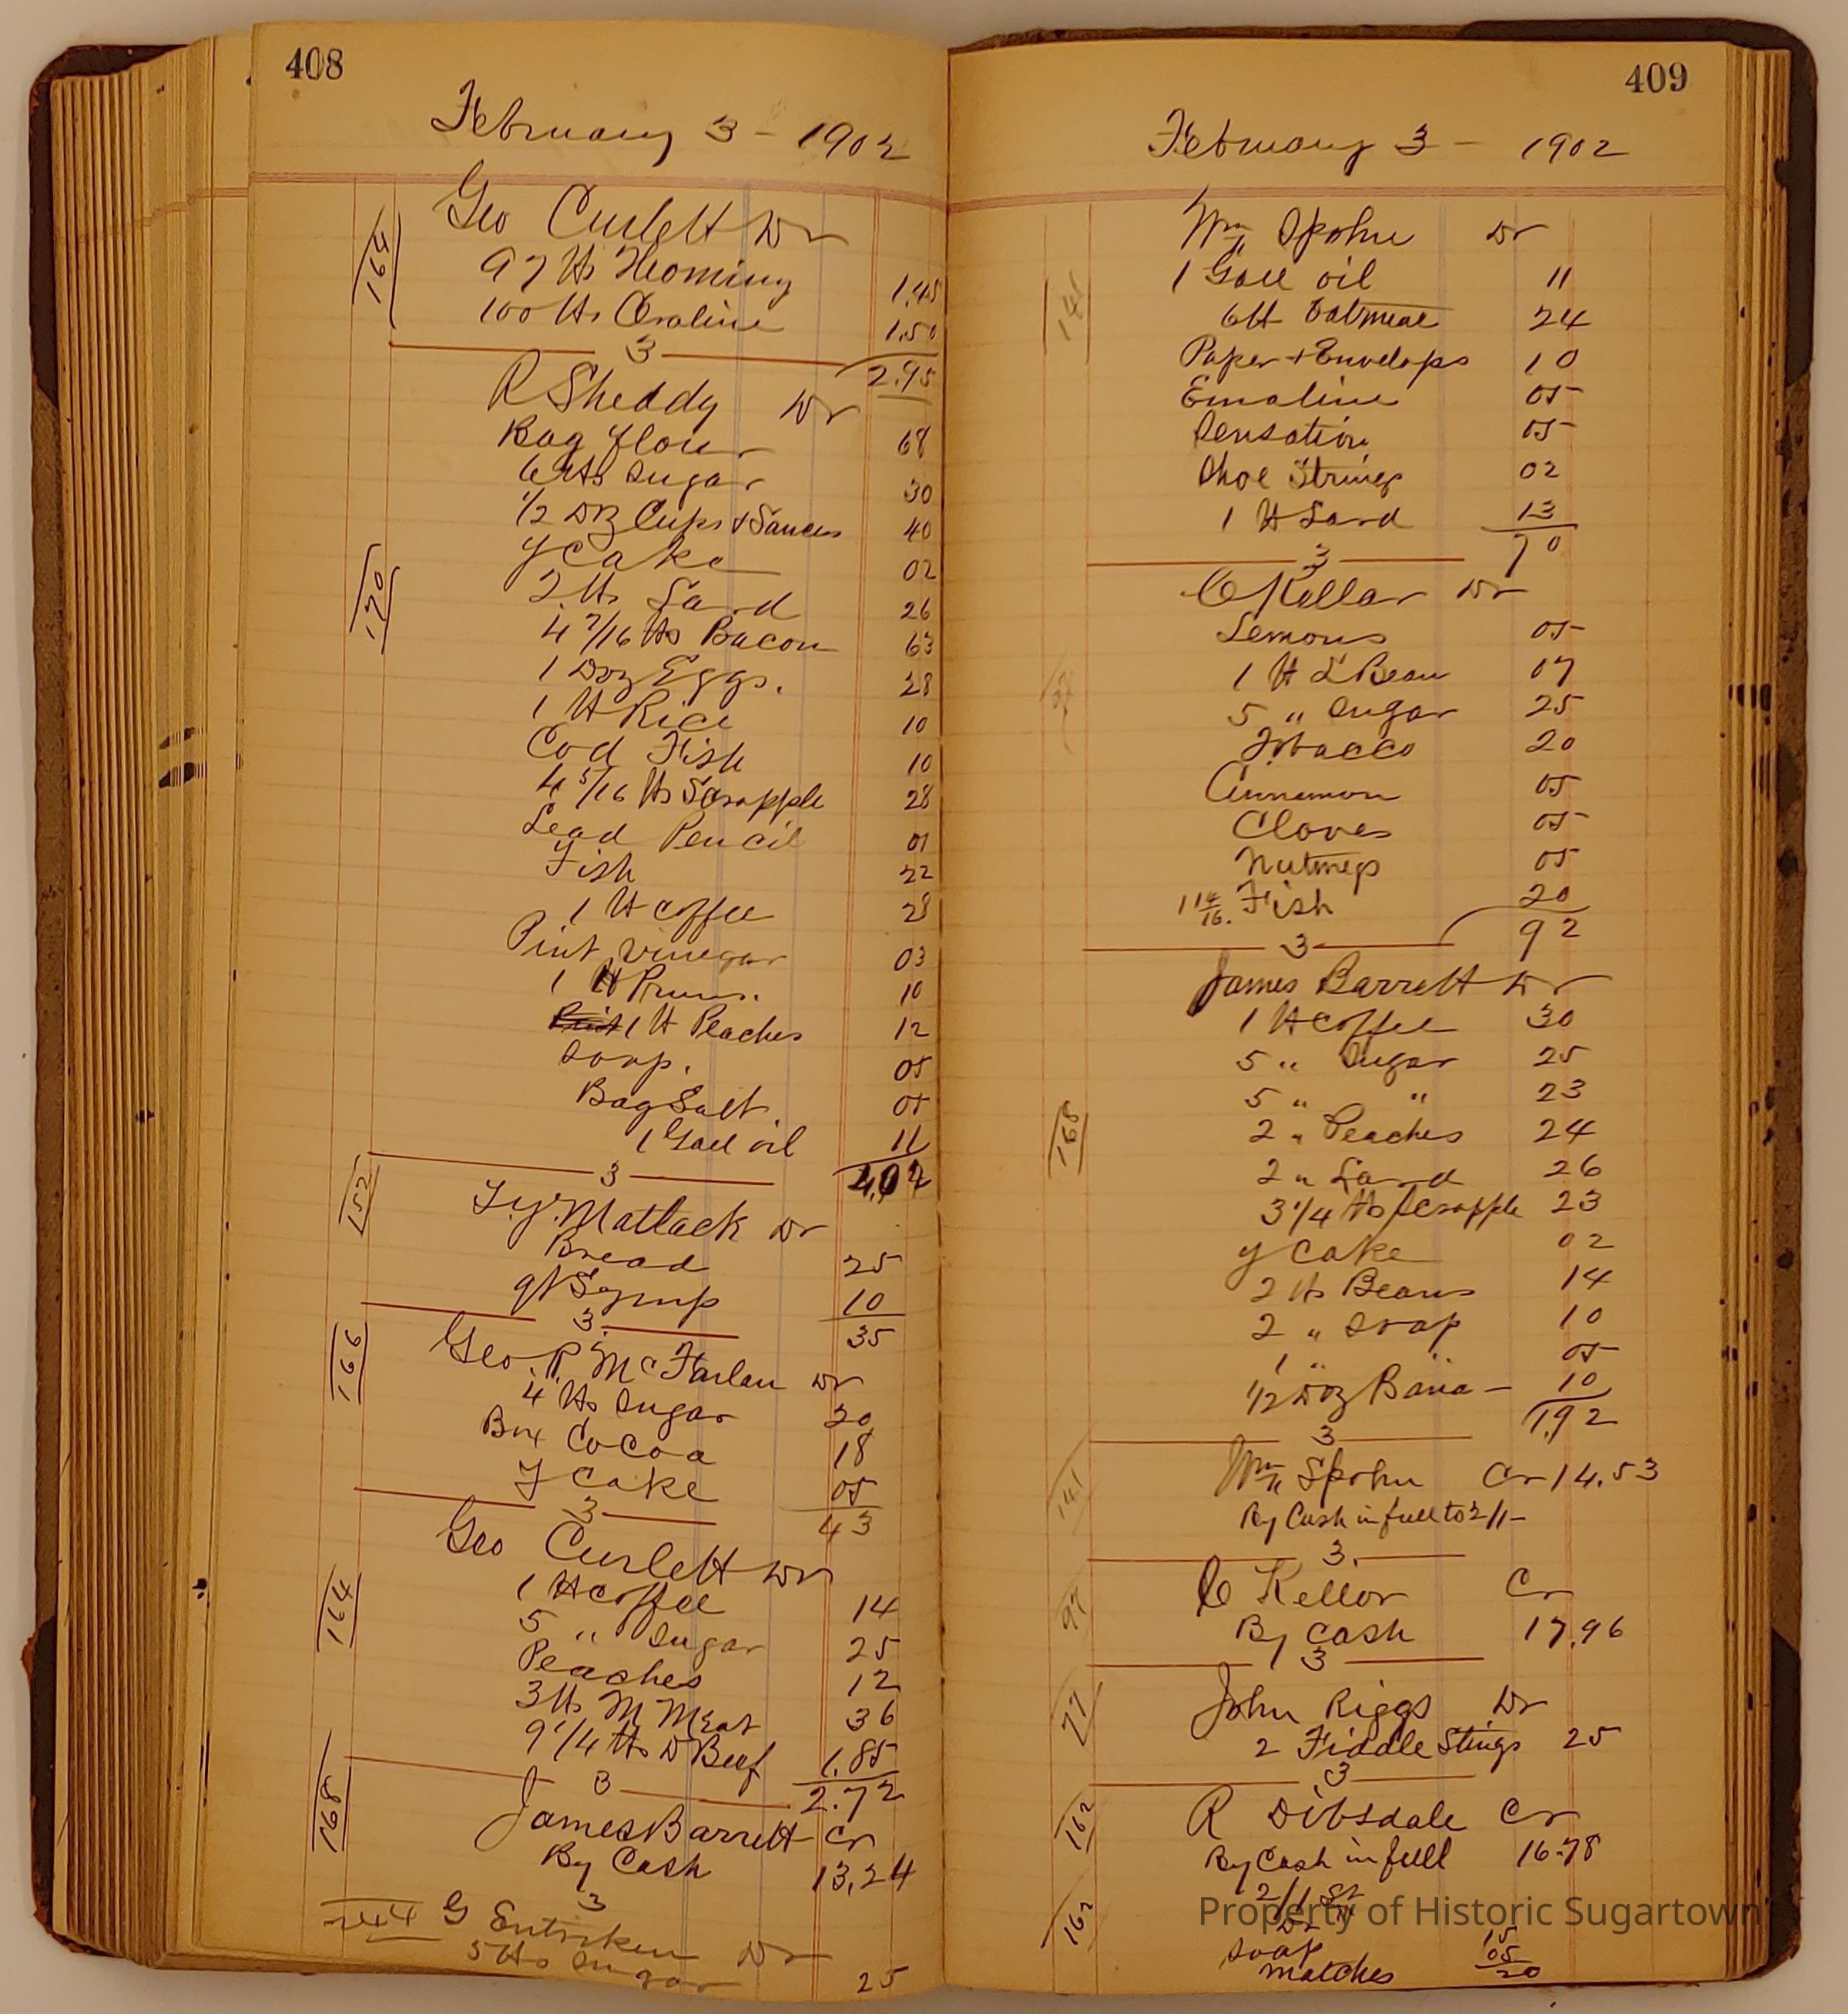 408
February 3 - 1902
164
Geo Curlett Dr
97 lbs Hominy 1.45
100 lbs Ceraline 1.50
3 2.95
R Sheddy Dr
Bag flour 68
6 lbs Sugar 30
1/2 Doz Cups + Saucers 40
170
Y Cake 02
2 lbs Lard 26
4 7/16 lbs Bacon 63
1 Doz Eggs. 28
1 lb Rice 10
Cod Fish 10
4 5/16 lbs Scrapple 28
Lead Pencil 01
Fish 22
1 lb Coffee 28
Pint Vinegar 03
1 lb Pruns. 10
1 lb Peaches 12
Soap. 05
Bag Salt. 05
1 Gall oil 11
3 4.02
152
Matlack Dr
Bread 25
qt Syrup 10
3. 35
166
Geo. R. McFarlan Dr
4 lbs Sugar 20
Box Cocoa 18
Y Cake 05
3 43
164
Geo Curlett Dr
1 lb Coffee 14
5 " Sugar 25
Peaches 12
3 lbs M Meat 36
9 1/4 lbs D Beef 1.85
3 2.72
168
James Barrett Cr
By Cash 13.24
3
G Entriken Dr
5 lbs Sugar 25
409
February 3 - 1902
Wm Spohn Dr
141
1 Gall oil 11
6 lb Oatmeal 24
Paper + Envelops 10
Emaline 05
Sensation 05
Shoe Strings 02
1 lb Lard 13
3 70
C Kellar Dr
Lemons 05
1 lb L Bean 07
5 " Sugar 25
Tobacco 20
Cinnamon 05
Cloves 05
Nutmegs 05
1 14/16. Fish 20
3 92
James Barrett Dr
1 lb Coffee 30
5 " Sugar 25
5 " " 23
168
2 " Peaches 24
2 " Lard 26
3 1/4 lbs Scrapple 23
Y Cake 02
2 lbs Beans 14
2 " Soap 10
1 " " 05
1/2 Doz Bana - 10
3 1.92
141
Wm Spohn Cr 14.53
By Cash in full to 2/1-
3.
97
C Kellor Cr
By Cash 17.96
3
77
John Riggs Dr
2 Fiddle Stings 25
3
162
R Dibsdale Cr
By Cash in full 16.78
2/1 St
162
Dr
Soap 15
Matches 05
20
Property of Historic Sugartown